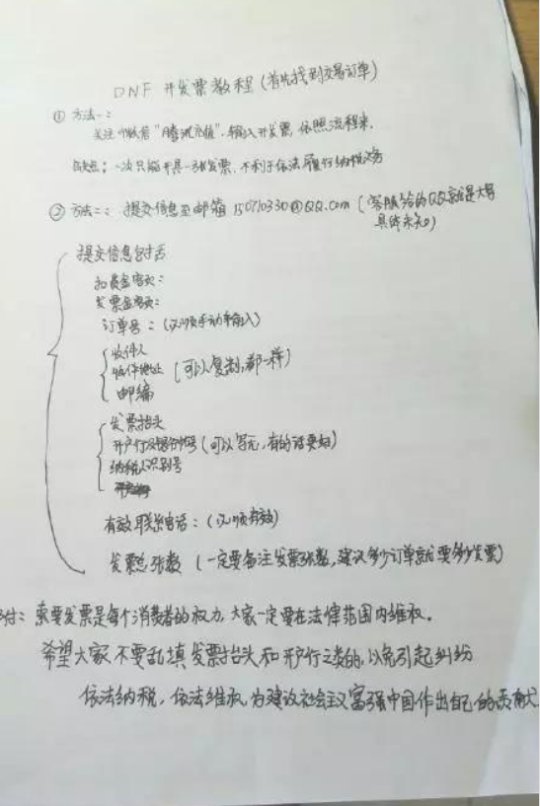 DNF 开发票教程(首先找到交易订单)
① 方法一:
关注"腾讯充值",输入开发票,依照流程来.
缺点:一次只能开具一张发票,不利于依法履行纳税义务
② 方法二:提交信息至邮箱 @QQ.com (客服给的QQ就是大号
具体未知)
提交信息包括
扣费金额:
发票金额:
订单号:(必须手动单输入)
收件人
收件地址 (可以复制,都一样)
邮编
发票抬头
开户行及银行帐号(可以写无,有的话要如)
纳税人识别号
有效联系电话:(必须有效)
发票总张数 (一定要备注发票张数,建议多少订单就要多少发票)
附:索要发票是每个消费者的权力,大家一定要在法律范围内维权。
希望大家不要乱填发票抬头和开户行之类的,以免引起纠纷
依法纳税,依法维权,为建设社会主义富强中国作出自己的贡献